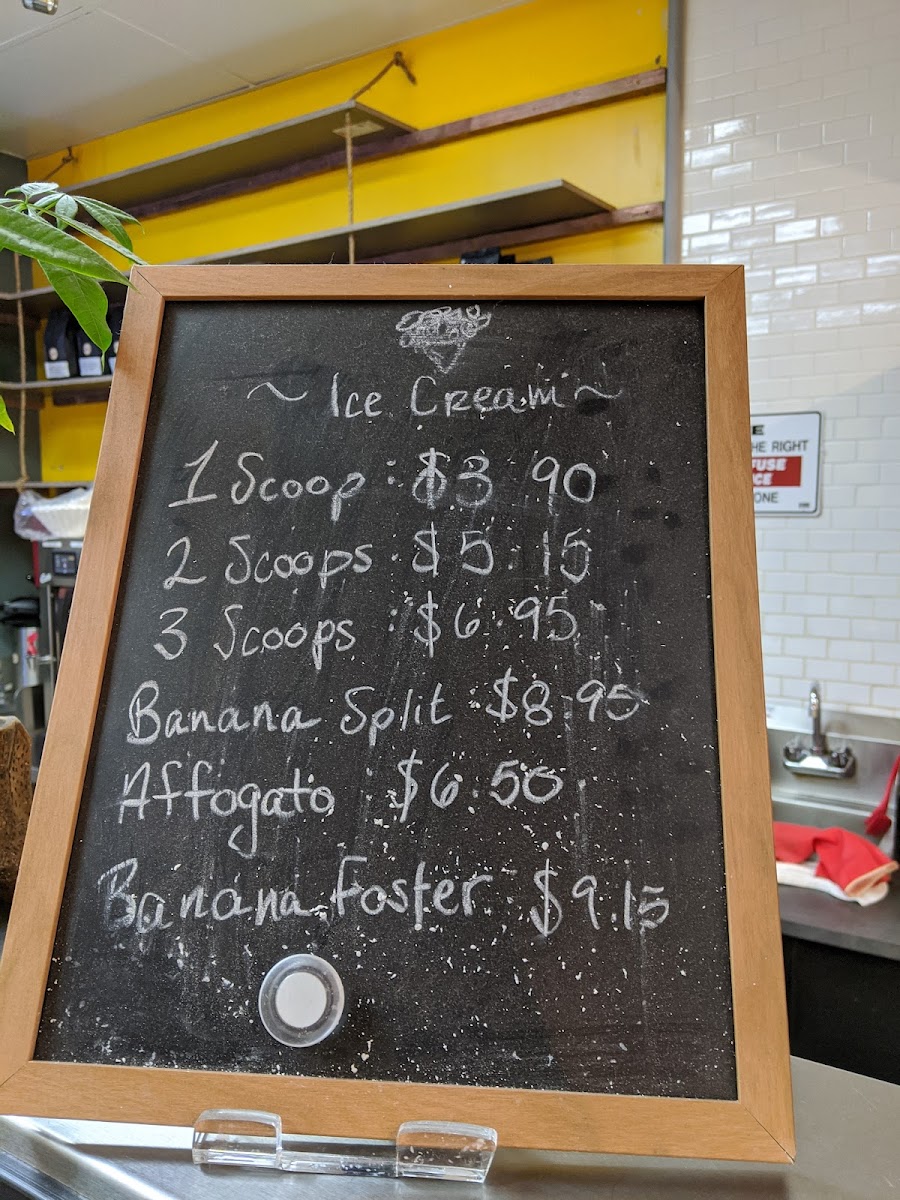 ~ Ice Cream ~
1 Scoop : $3.90
2 Scoops : $5.15
3 Scoops : $6.95
Banana Split $8.95
Affogato $6.50
Banana Foster $9.15
HE RIGHT
FUSE
CE
ONE